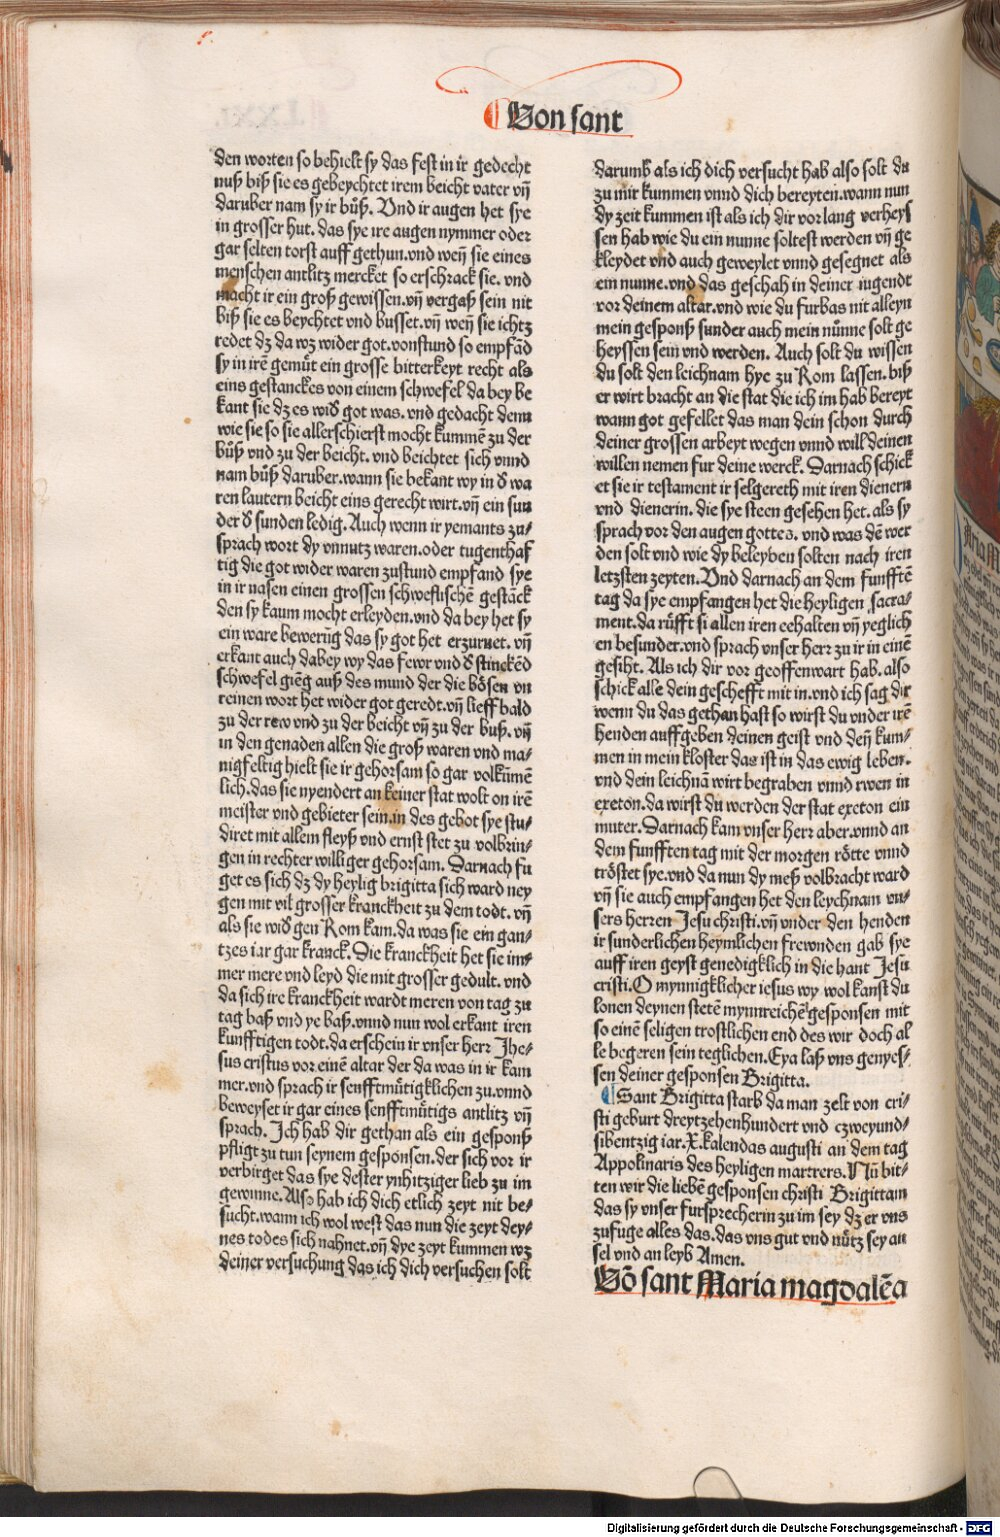 Von sant
den worten so behielt sy das fest in ir gedecht
nuß biß sie es gebeychtet irem beicht vater vñ
daruber nam sy ir bůß. Vnd ir augen het sye
in grosser hut. das sye ire augen nymmer oder
gar selten torst auff gethun. vnd weñ sie eines
menschen antlitz mercket so erschrack sie. vnd
macht ir ein groß gewissen. vñ vergaß sein nit
biß sie es beychtet vnd busset. vñ weñ sie ichtz
redet dz da wz wider got. vonstund so empfãd
sy in irẽ gemůt ein grosse bitterkeyt recht als
eins gestanckes von einem schwefel da bey be
kant sie dz es wid̕ got was. vnd gedacht denn
wie sie so sie allerschierst mocht kummẽ zu der
bůß vnd zu der beicht. vnd beichtet sich vnnd
nam bůß daruber. wann sie bekant wy in d̕ wa
ren lautern beicht eins gerecht wirt. vñ ein sun
der d̕ sunden ledig. Auch wenn ir yemants zu⸗
sprach wort dy vnnutz waren. oder tugenthaf
tig die got wider waren zustund empfand sye
in ir nasen einen grossen schweflischẽ gestãck
den sy kaum mocht erleyden. vnd da bey het sy
ein ware bewerũg das sy got het erzurnet. vñ
erkant auch dabey wy das fewr vnd d̕ stinckẽd
schwefel giẽg auß des mund der die bösen vn
reinen wort het wider got geredt. vñ lieff bald
zu der rew vnd zu der beicht vñ zu der buß. vñ
in den genaden allen die groß waren vnd ma⸗
nigfeltig hielt sie ir gehorsam so gar volkũmẽ
lich. das sie nyendert an keiner stat wolt on irẽ
meister vnd gebieter sein. in des gebot sye stu⸗
diret mit allem fleyß vnd ernst stet zu volbrin⸗
gen in rechter williger gehorsam. Darnach fu
get es sich dz dy heylig brigitta sich ward ney
gen mit vil grosser kranckheit zu dem todt. vñ
als sie wid̕ gen Rom kam. da was sie ein gan⸗
tzes iar gar kranck. Die kranckheit het sie im⸗
mer mere vnd leyd die mit grosser gedult. vnd
da sich ire kranckheit wardt meren von tag zu
tag baß vnd ye baß. vnnd nun wol erkant iren
kunfftigen todt. da erschein ir vnser herr Jhe⸗
sus cristus vor einẽ altar der da was in ir kam
mer. vnd sprach ir senfftmůtigklichen zu. vnnd
beweyset ir gar eines senfftmůtigs antlitz vñ
sprach. Ich hab dir gethan als ein gesponß
pfligt zu tun seynem gesponsen. der sich vor ir
verbirget das sye dester ynhitziger lieb zu im
gewinne. Also hab ich dich etlich zeyt nit be⸗
sucht. wann ich wol west das nun die zeyt dey⸗
nes todes sich nahnet. vñ dye zeyt kummen wz
deiner versuchung das ich dich versuchen solt
darumb als ich dich versucht hab also solt du
zu mir kummen vnnd dich bereyten. wann nun
dy zeit kummen ist als ich dir vor lang verheys
sen hab wie du ein nunne soltest werden vñ ge
kleydet vnd auch geweylet vnnd gesegnet als
ein nunne. vnd das geschah in deiner iugendt
vor deinem altar. vnd wie du furbas nit alleyn
mein gesponß sunder auch mein nůnne solt ge
heyssen sein vnd werden. Auch solt du wissen
du solt den leichnam hye zu Rom lassen. biß
er wirt bracht an die stat die ich im hab bereyt
wann got gefellet das man dein schon durch
deiner grossen arbeyt wegen vnnd will deinen
willen nemen fur deine werck. Darnach schick
et sie ir testament ir selgereth mit iren dienern
vnd dienerin. die sye steen gesehen het. als sy
sprach vor den augen gottes. vnd was dẽ wer
den solt vnd wie dy beleyben solten nach iren
letzsten zeyten. Vnd darnach an dem funfftẽ
tag da sye empfangen het die heyligen sacra⸗
ment. da růfft si allen iren eehalten vñ yeglich
en besunder. vnd sprach vnser herr zu ir in einẽ
gesiht. Als ich dir vor geoffenwart hab. also
schick alle dein geschefft mit in. vnd ich sag dir
wenn du das gethan hast so wirst du vnder irẽ
henden auffgeben deinen geist vnd deñ kum⸗
men in mein kloster das ist in das ewig leben.
vnd dein leichnã wirt begraben vnnd rwen in
exeton. da wirst du werden der stat exeton ein
muter. Darnach kam vnser herr aber. vnnd an
dem funfften tag mit der morgen rötte vnnd
tröstet sye. vnd da nun dy meß volbracht ward
vñ sie auch empfangen het den leychnam vn⸗
sers herren Jesu christi. vñ vnder den henden
ir sunderlichen heymlichen frewnden gab sye
auff iren geyst genedigklich in die hant Jesu
cristi. O mynnigklicher iesus wy wol kanst du
lonen deynen stetẽ mynnreichẽ gesponsen mit
so einẽ seligen trostlichen end des wir doch al
le begeren sein teglichen. Eya laß vns genyes⸗
sen deiner gesponsen Brigitta.
Sant Brigitta starb da man zelt von cri⸗
sti geburt dreytzehenhundert vnd czweyund⸗
sibentzig iar. X. kalendas augusti an dem tag
Appolinaris des heyligen martrers. Nũ bit⸗
ten wir die liebẽ gesponsen christi Brigittam
das sy vnser fursprecherin zu im sey dz er vns
zufuge alles das. das vns gut vnd nůtz sey an
sel vnd an leyb Amen.
Võ sant Maria magdalẽa
Digitalisierung gefördert durch die Deutsche Forschungsgemeinschaft - DFG